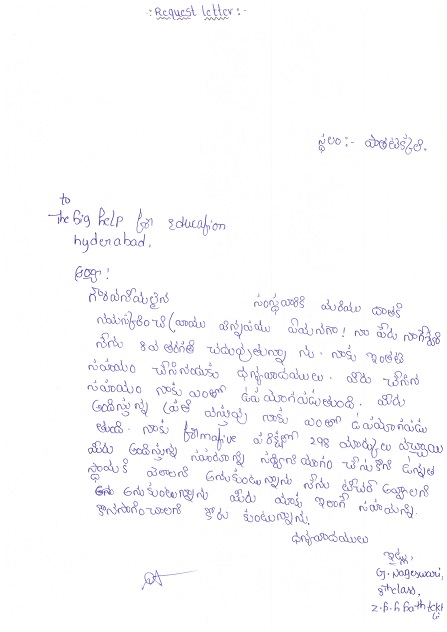 :Request letter:-
స్థలం:- పాతటెక్కలి.
to
The big help for Education
hyderabad.
అయ్యా!
గౌరవనీయులైన సంస్థవారికి మరియు దాతకి
నమస్కరించి వ్రాయు విన్నపము ఏమనగా! నా పేరు నాగేశ్వరి
నేను 8వ తరగతి చదువుతున్నాను. నాకు ఇంతటి
సహాయం చేసినందుకు ధన్యవాదములు. మీరు చేసిన
సహాయం నాకు ఎంతో ఉపయోగపడుతుంది. మీరు
అందిస్తున్న ప్రతి వస్తువు నాకు ఎంతో ఉపయోగపడు
తుంది. నాకు formative పరీక్షలో 298 మార్కులు వచ్చాయి
మీరు అందిస్తున్న సహాయాన్ని సద్వినియోగం చేసుకొని ఉన్నత
స్థాయికి వెళాలని అనుకుంటున్నాను నేను టీచర్ అవ్వాలని
అనుకుంటున్నాను మీరు మాకు ఇలాగే సహాయాన్ని
కొనసాగించాలని కోరు కుంటున్నాను.
ధన్యవాదములు
ఇట్లు,
G. Nageswari,
8th class,
Z.P.H Path tekkali